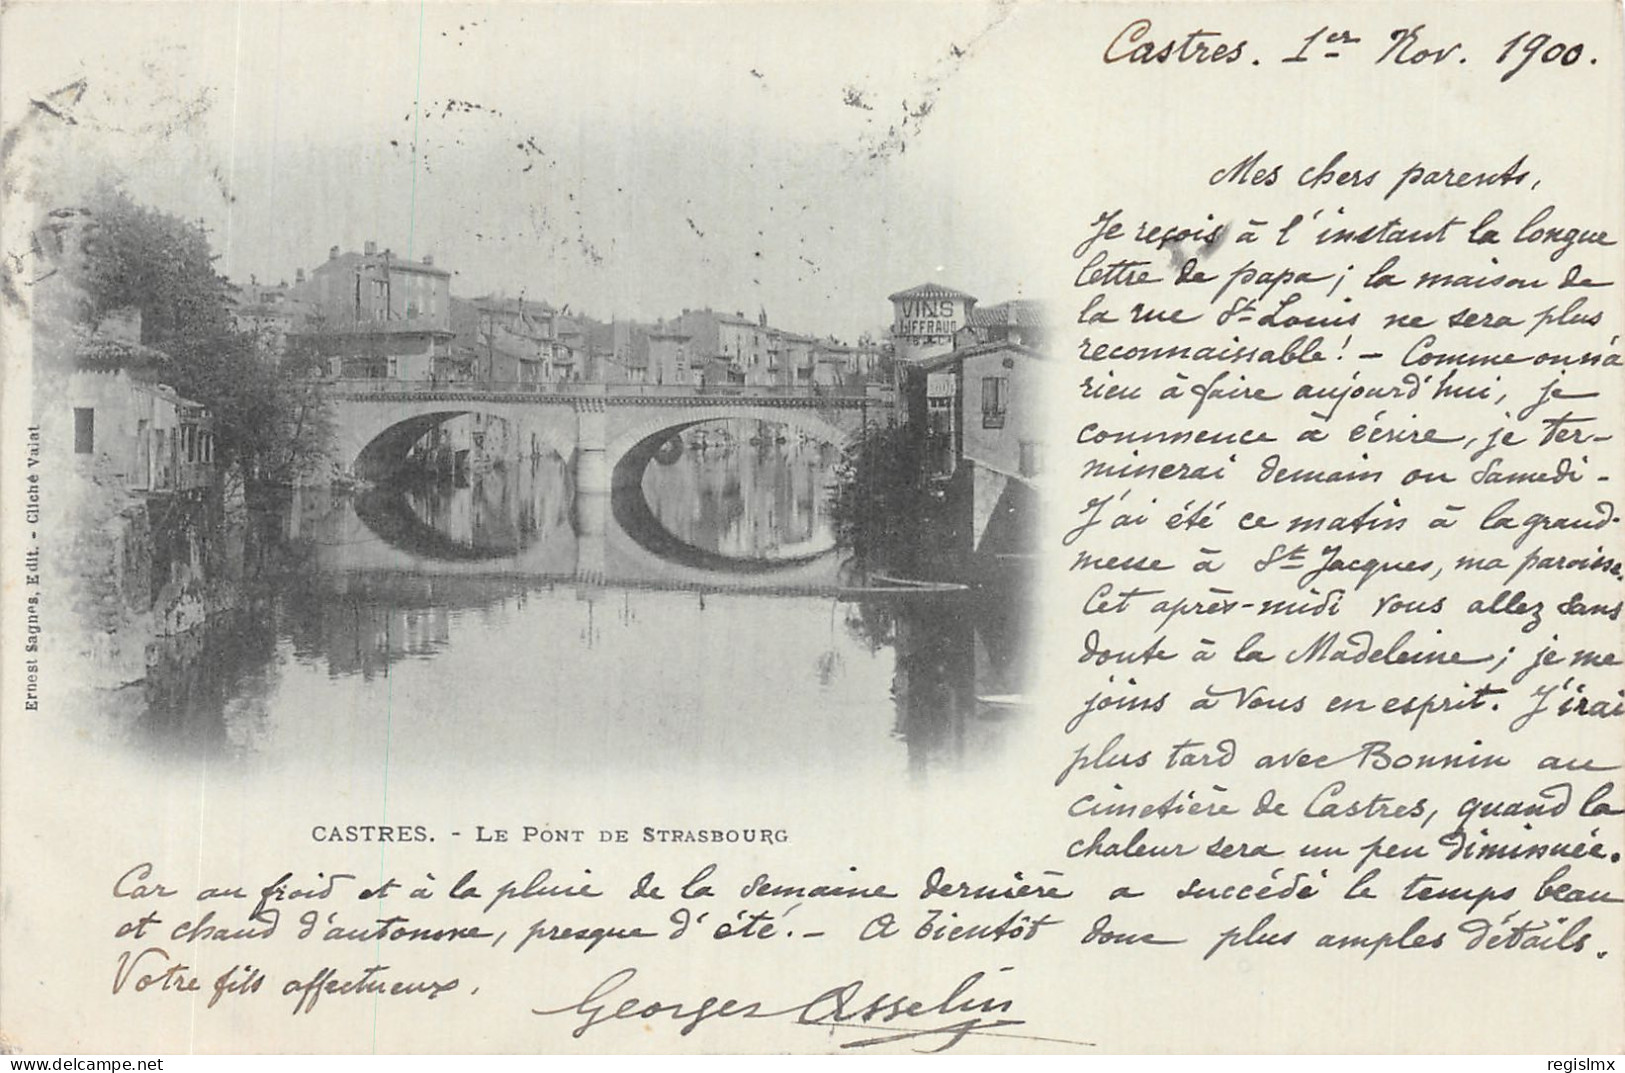 Castres. 1er Nov. 1900.
Mes chers parents,
Je reçois à l'instant la longue
lettre de papa; la maison de
la rue St Louis ne sera plus
reconnaissable! - Comme on n'a
rien à faire aujourd'hui, je
commence à écrire, je ter-
minerai demain ou Samedi -
J'ai été ce matin à la grand-
messe à St Jacques, ma paroisse.
Cet après-midi vous allez sans
doute à la Madeleine; je me
joins à Vous en esprit. J'irai
plus tard avec Bonnin au
cimetière de Castres, quand la
chaleur sera un peu diminuée.
Car au froid et à la pluie de la Semaine dernière a succédé le temps beau
et chaud d'automne, presque d'été. - A bientôt donc plus amples détails.
Votre fils affectueux.
Georges Asselin
VINS
CASTRES. - LE PONT DE STRASBOURG
Ernest Sagnes, Edit. - Cliché Valat
regislmx